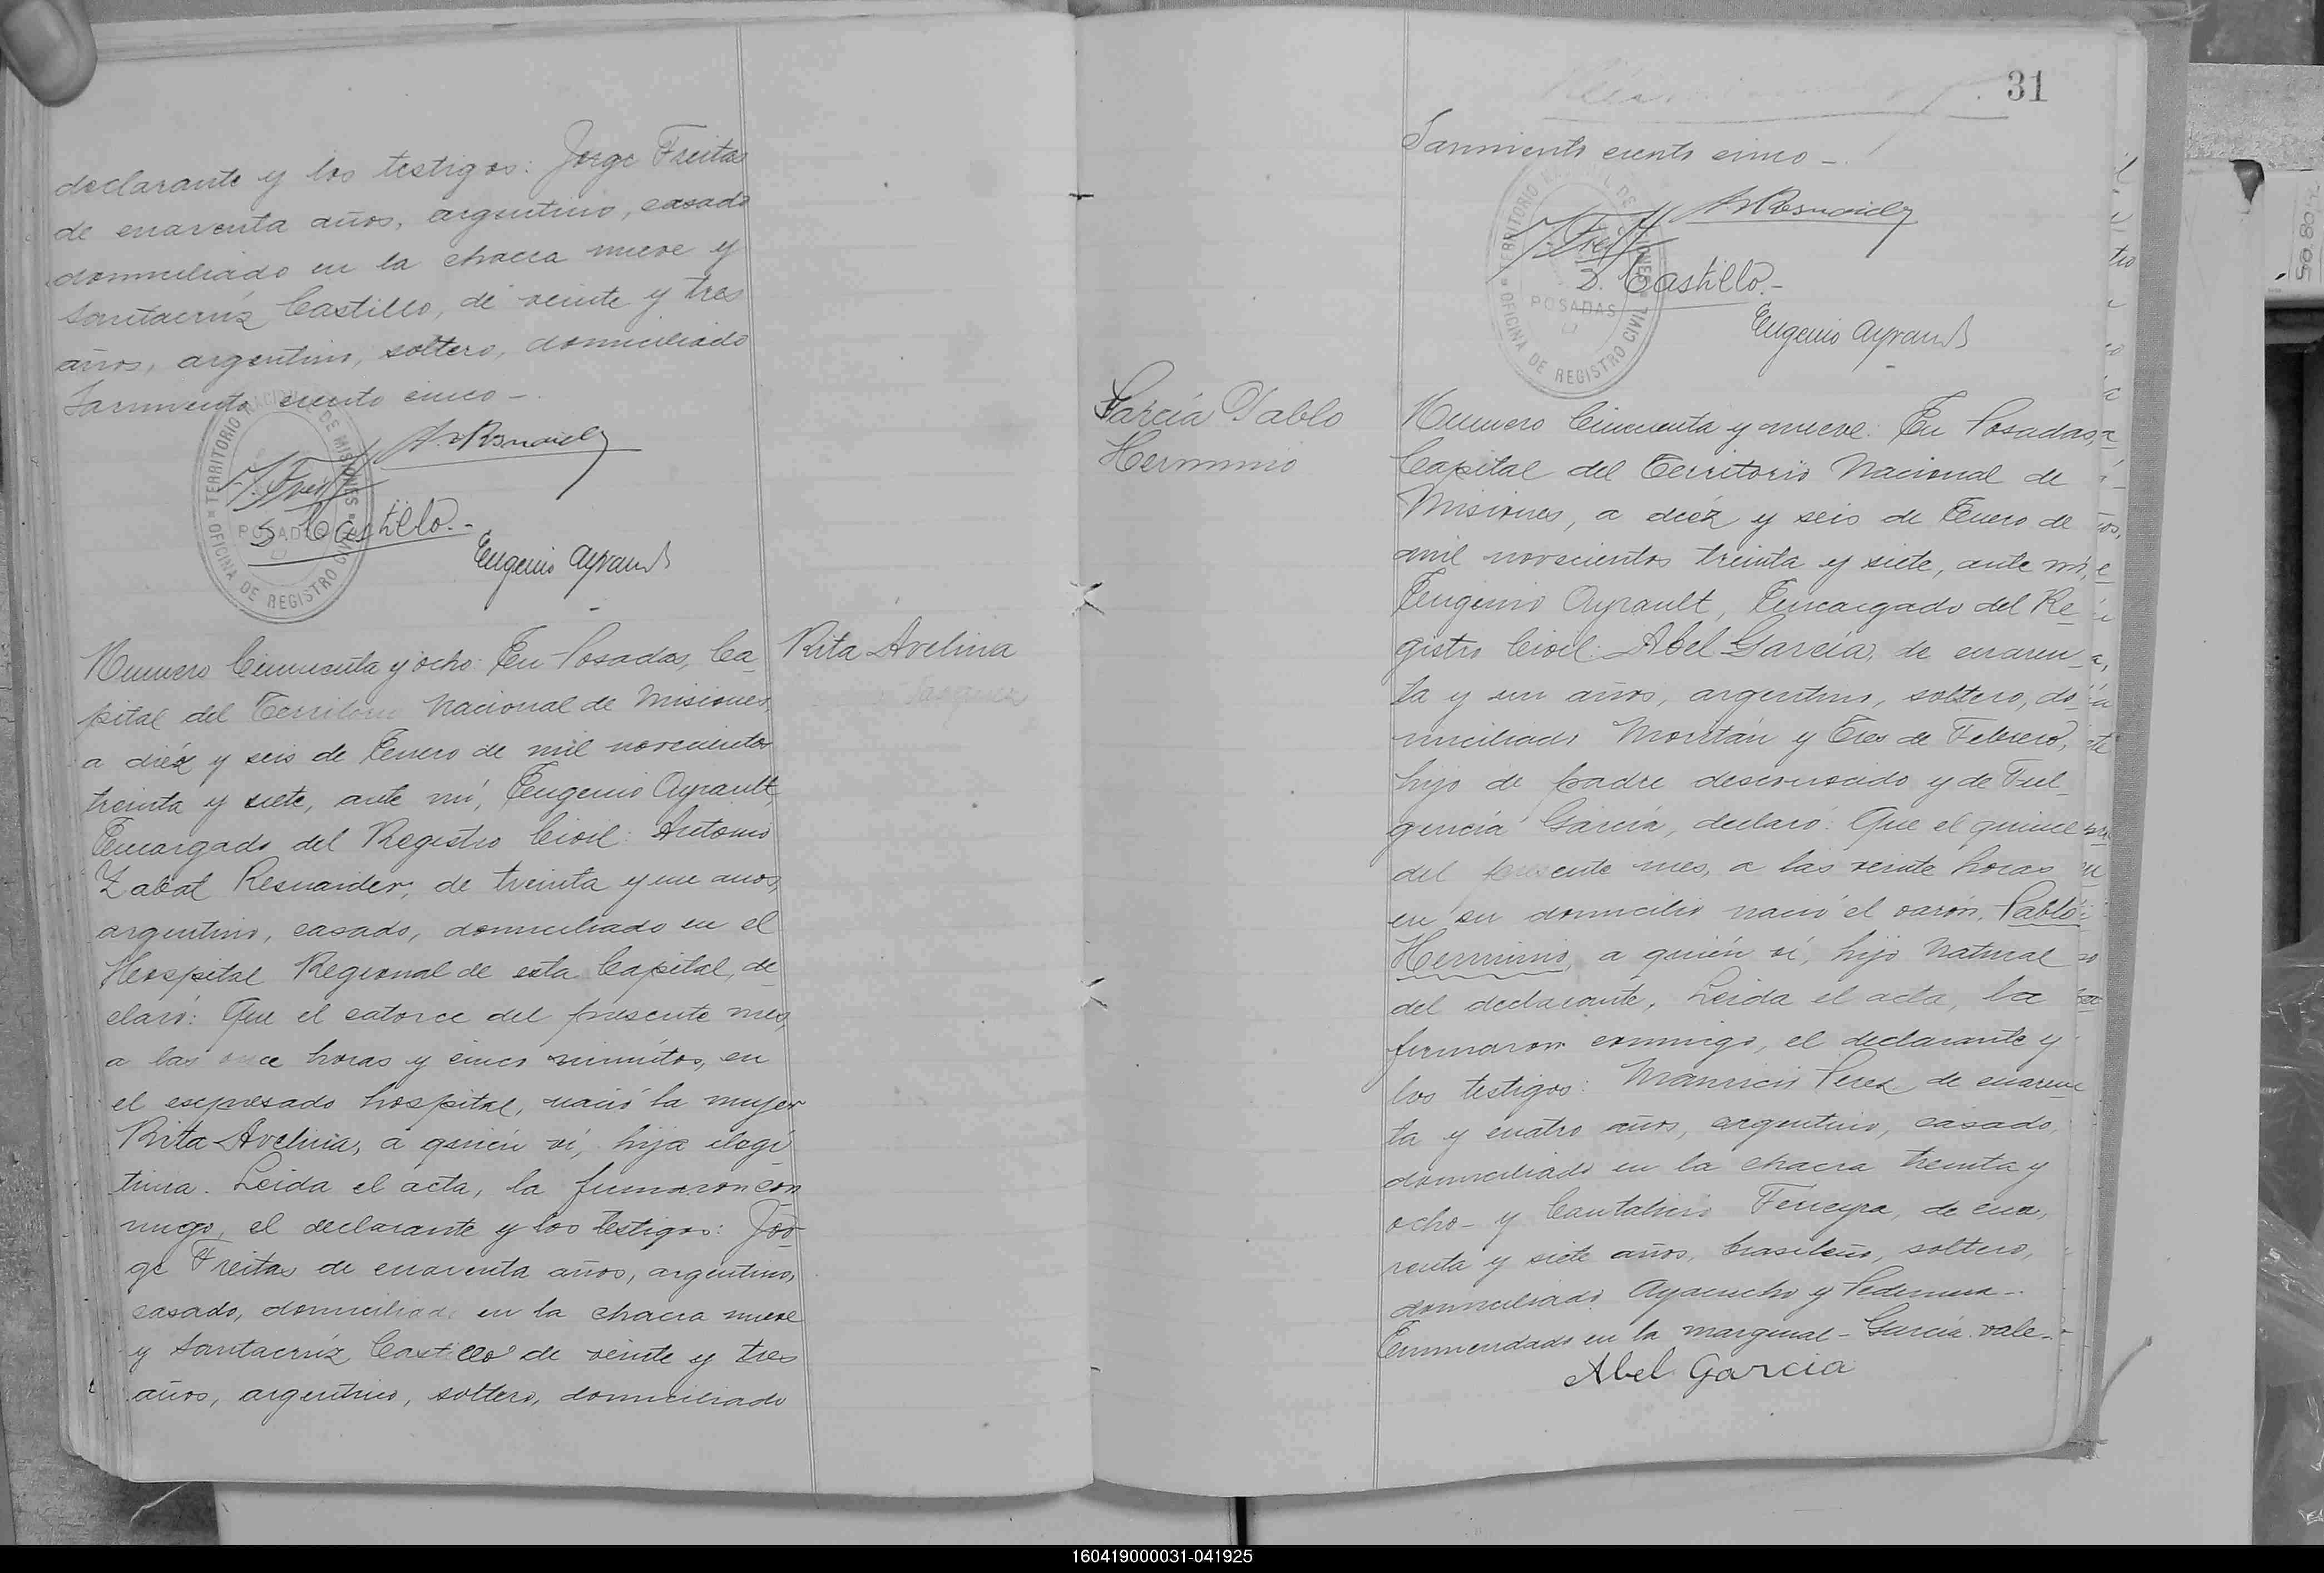 declarante y los testigos: Jorge Freitas
de cuarenta años, argentino, casado
domiciliado en la chacra nueve y
Santacrúz Castillo, de veinte y tres
años, argentino, soltero, domiciliado
Sarmiento ciento cinco -
TERRITORIO NACIONAL DE MISIONES
POSADAS
OFICINA DE REGISTRO CIVIL
S. Castillo.-
Eugenio Ayrault
Numero Cincuenta y ocho: En Posadas, Ca-
pital del Territorio Nacional de Misiones,
a diéz y seis de Enero de mil novecientos
treinta y siete, ante mí, Eugenio Ayrault,
Encargado del Registro Civil: Antonio
Zabat Resnaider, de treinta y un anos,
argentino, casado, domiciliado en el
Hospital Regional de esta Capital, de-
claró: Que el catorce del presente mes,
a las once horas y cinco minútos, en
el expresado hospital, nació la mujer
Rita Avelina, a quién ví, hija ilegí
tima. Leida el acta, la firmaron con
migo, el declarante y los testigos: Jor-
ge Freitas de cuarenta años, argentino,
casado, domiciliado en la chacra nueve
y Santacrúz Castillo de veinte y tres
años, argentino, soltero, domiciliado
Rita Avelina
31
Sarmiento ciento cinco -.
TERRITORIO NACIONAL DE MISIONES
POSADAS
OFICINA DE REGISTRO CIVIL
S. Castillo.-
Eugenio Ayrault
García Pablo
Herminio
Numero Cincuenta y nueve: En Posadas,
Capital del Territorio Nacional de
Misiones, a diéz y seis de Enero de
mil novecientos treinta y siete, ante mí,
Eugenio Ayrault, Encargado del Re-
gistro Civil: Abel García, de cuaren-
ta y un años, argentino, soltero, do-
miciliado Moritán y Tres de Febrero,
hijo de padre desconocido y de Ful-
gencia García, declaró: Que el quince
del presente mes, a las veinte horas
en su domicilio nació el varón, Pablo
Herminio, a quién ví, hijo natural
del declarante, Leida el acta, la
firmaron conmigo, el declarante y
los testigos: Mauricio Perez de cuaren
ta y cuatro años, argentino, casado,
domiciliado en la chacra treinta y
ocho - y Cantalicio Ferreyra, de cua,
renta y siete años, brasileño, soltero,
domiciliado Ayacucho y Pedernera -.
Enmendado en la marginal - García. vale -.
Abel Garcia
160419000031-041925